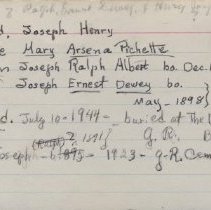 d, Joseph Henry
e Mary Arsena Pichette
n Joseph Ralph Albert bo. Dec.
Joseph Ernest Dewey bo.
May - 1898
d. July 10-1944 - buried at The
(Ralph) ? 1891 G.R.
Joseph - b1895 - 1923 - G.R. Cem